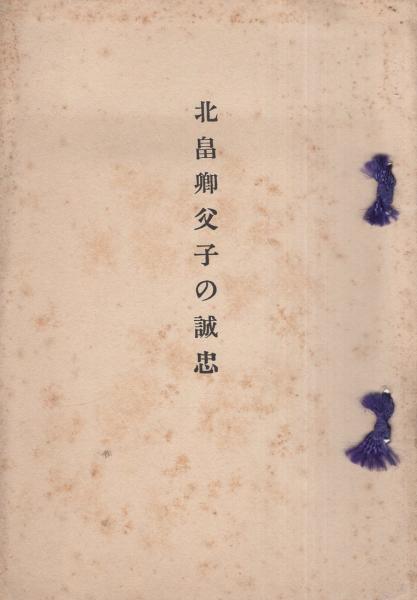 北畠卿父子の誠忠